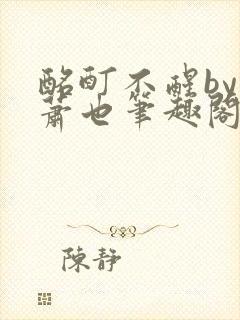 酩酊不醒by
蕭也筆趣閣
陳靜